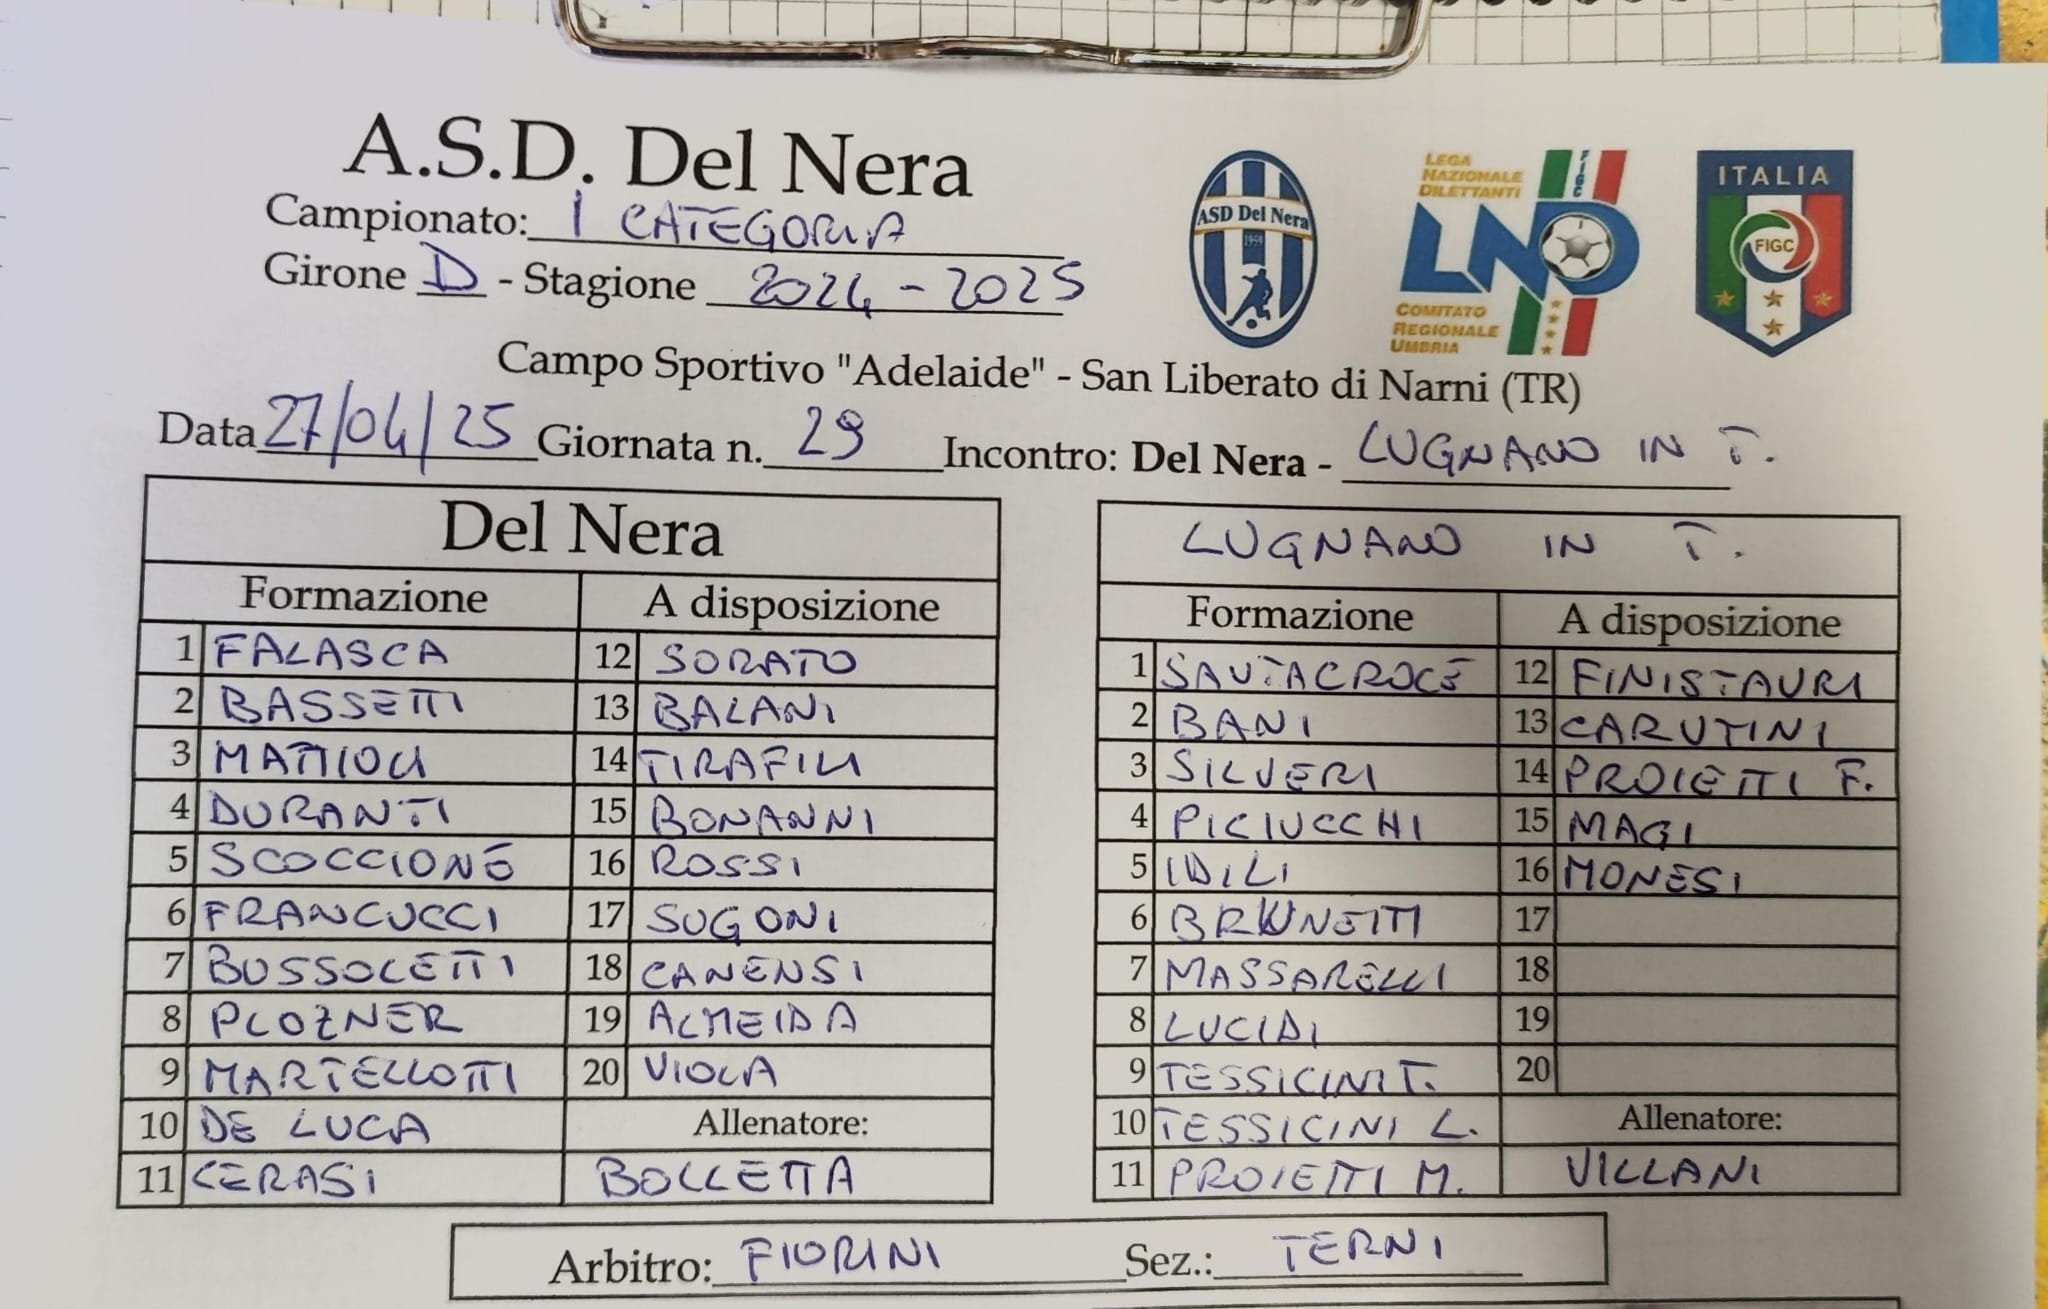 A.S.D. Del Nera
Campionato: I CATEGORIA
Girone D - Stagione 2024 - 2025
ASD Del Nera
1959
LEGA
NAZIONALE
DILETTANTI
FIGC
LND
COMITATO
REGIONALE
UMBRIA
ITALIA
FIGC
Campo Sportivo "Adelaide" - San Liberato di Narni (TR)
Data 27/04/25 Giornata n. 29 Incontro: Del Nera - LUGNANO IN T.
Del Nera
Formazione A disposizione
1 FALASCA 12 SORATO
2 BASSETTI 13 BALANI
3 MATTIOLI 14 TIRAFILI
4 DURANTI 15 BONANNI
5 SCOCCIONE 16 ROSSI
6 FRANCUCCI 17 SUGONI
7 BUSSOLETTI 18 CANENSI
8 PLOZNER 19 ALMEIDA
9 MARTELLOTTI 20 VIOLA
10 DE LUCA Allenatore:
11 CERASI BOLLETTA
LUGNANO IN T.
Formazione A disposizione
1 SANTACROCE 12 FINISTAURI
2 BANI 13 CARUTINI
3 SILVERI 14 PROIETTI F.
4 PICIUCCHI 15 MAGI
5 IDILI 16 MONESI
6 BRUNETTI 17
7 MASSARELLI 18
8 LUCIDI 19
9 TESSICINI T. 20
10 TESSICINI L. Allenatore:
11 PROIETTI M. VILLANI
Arbitro: FIORINI Sez.: TERNI